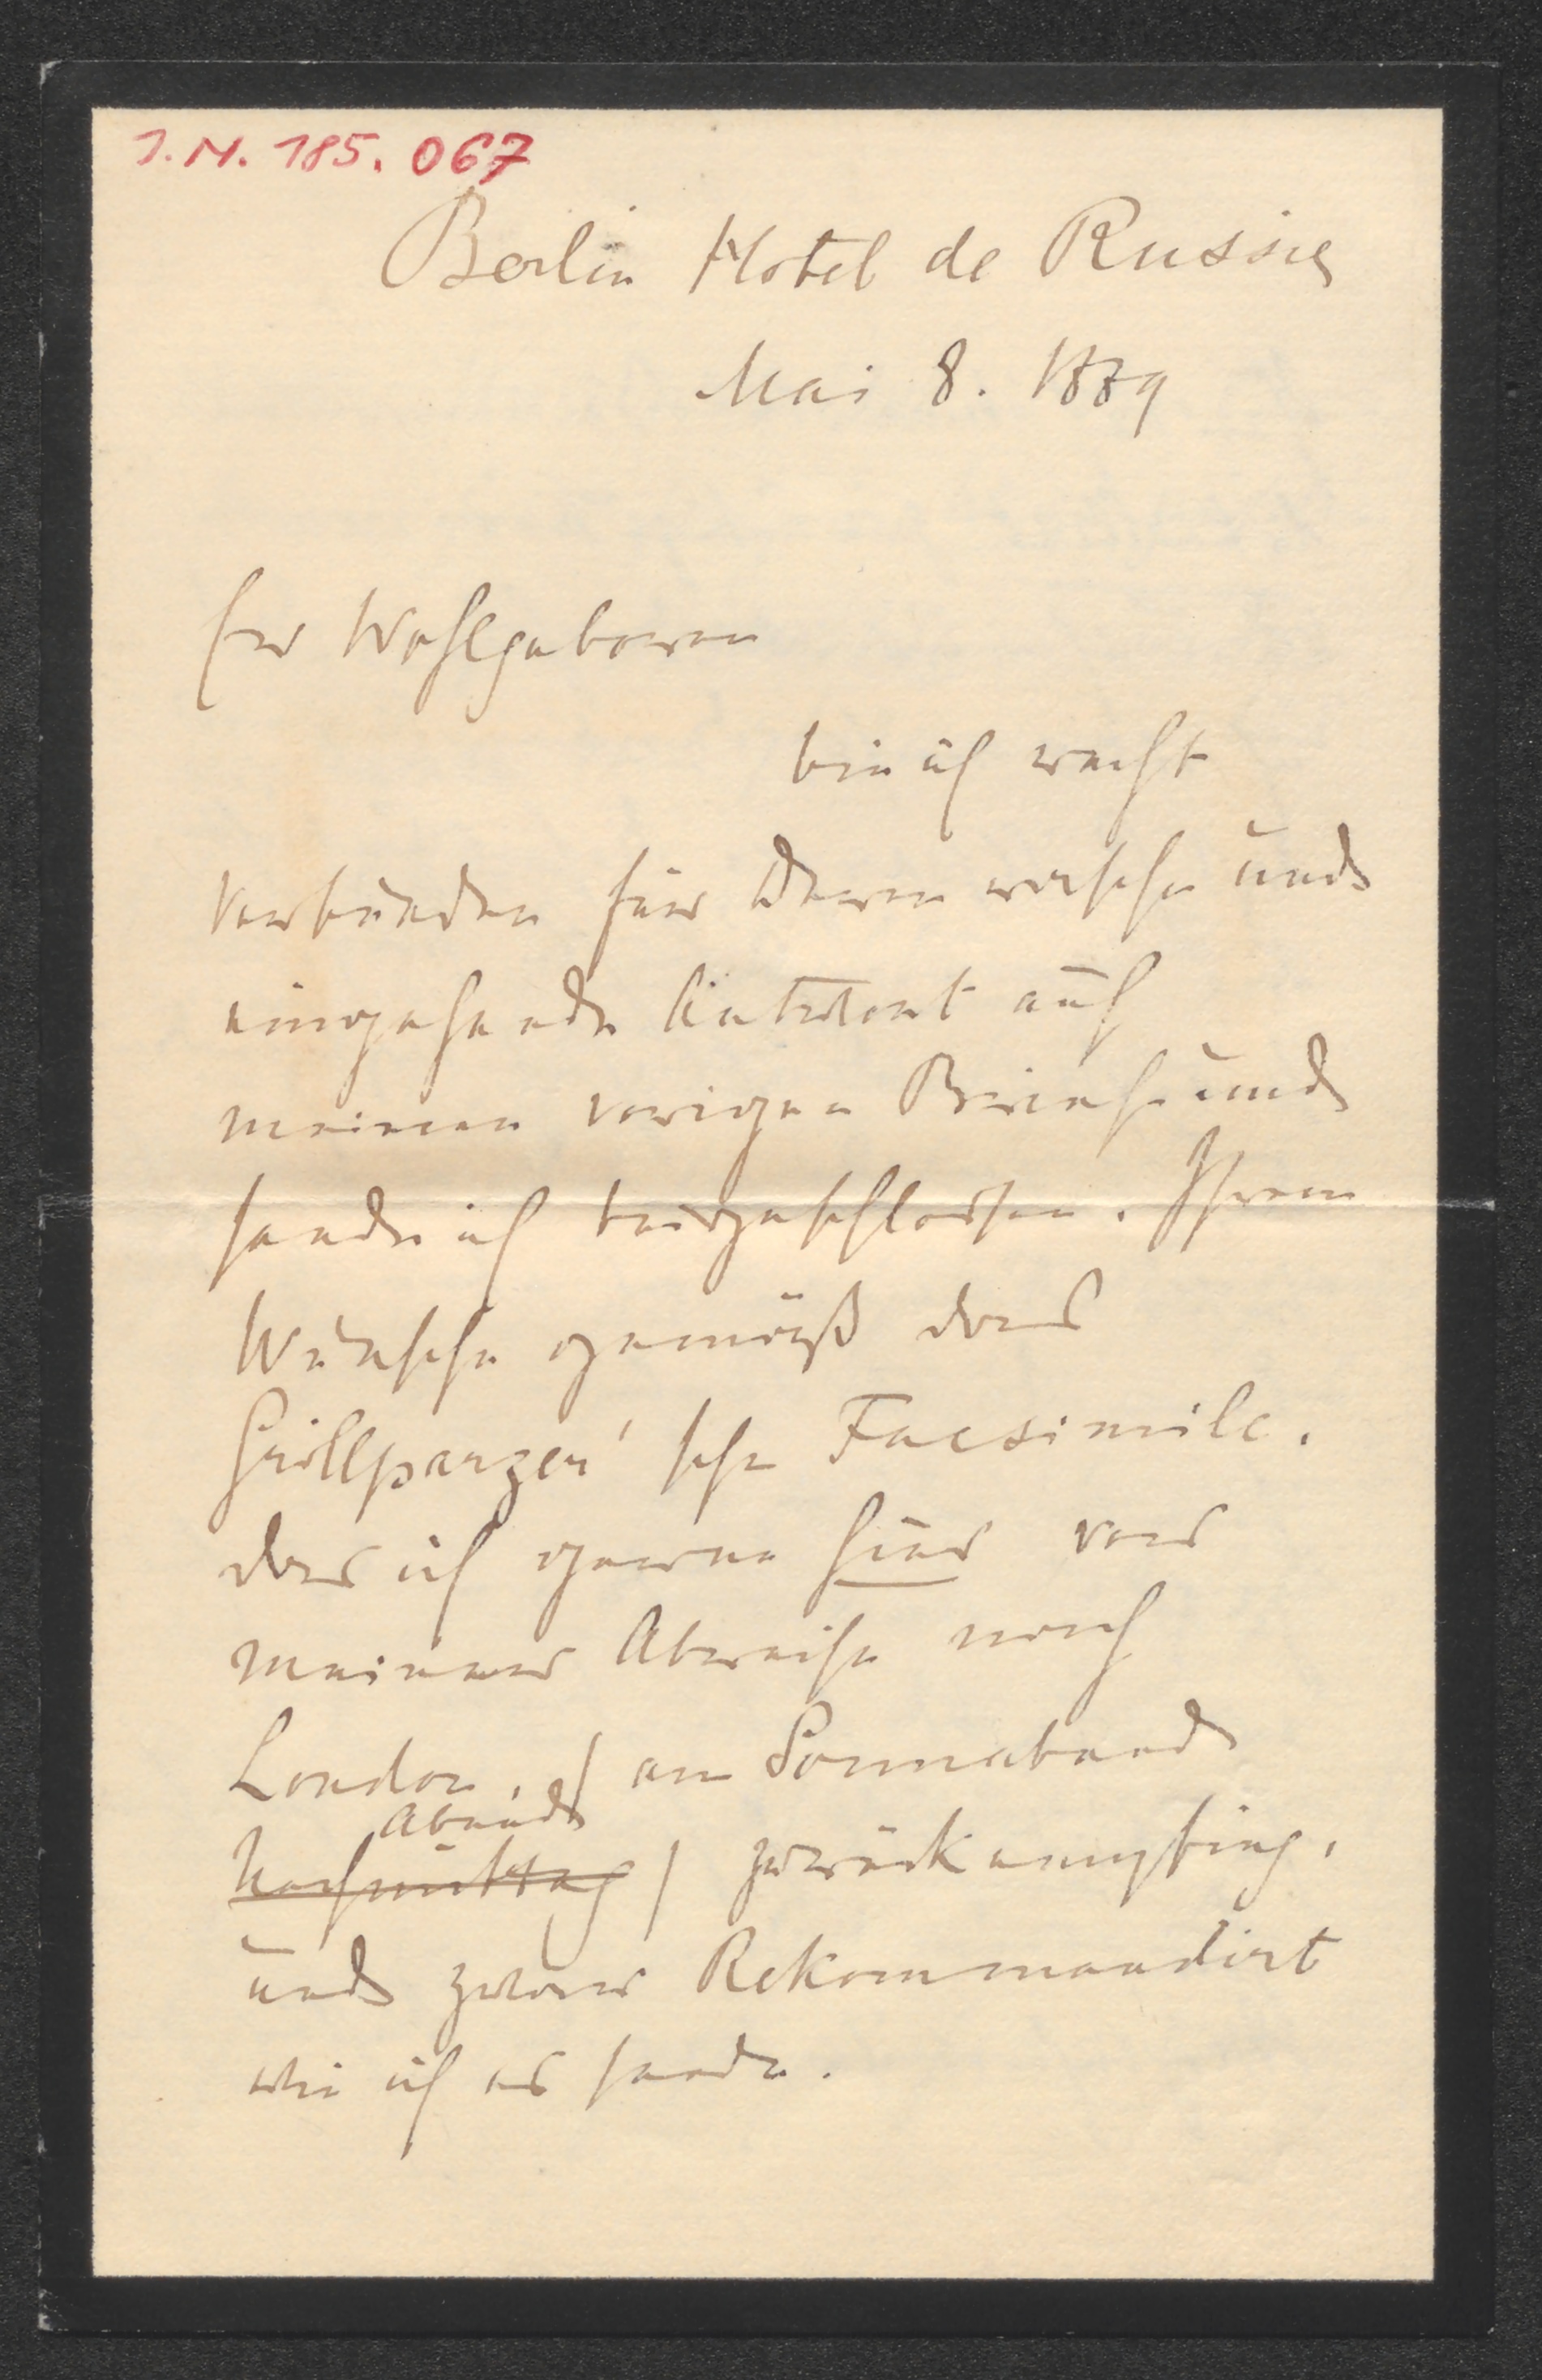 I.N. 185.067
Berlin Hotel de Russie
Mai 8. 1879
Ew Wohlgeboren
bin ich recht
verbunden für Deren rasche und
eingehende Antwort auf
meinen vorigen Brief und
sende ich beigeschlossen. Ihrem
Wunsche gemäß das
Grillparzer'sche Facsimile.
das ich gerne hier vor
meiner Abreise nach
London, / am Sonnabend
Abends
Nachmittag / zurückempfing,
und zwar Rekommandirt
wie ich es sende.